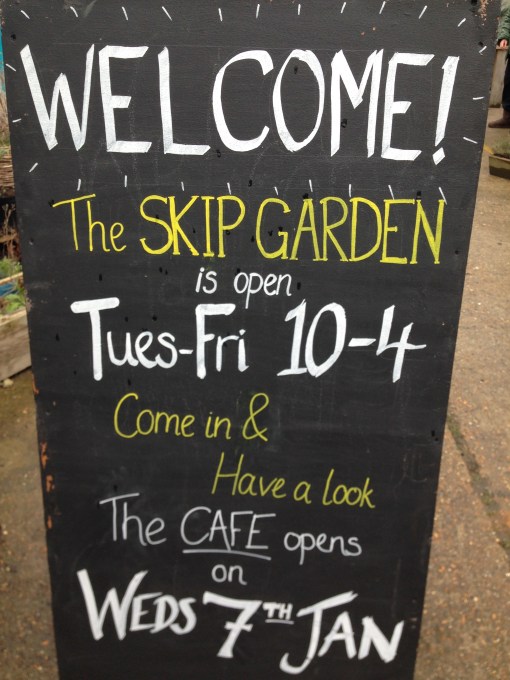 WELCOME!
The SKIP GARDEN
is open
Tues-Fri 10-4
Come in &
Have a look
The CAFE opens
on
WEDS 7TH JAN